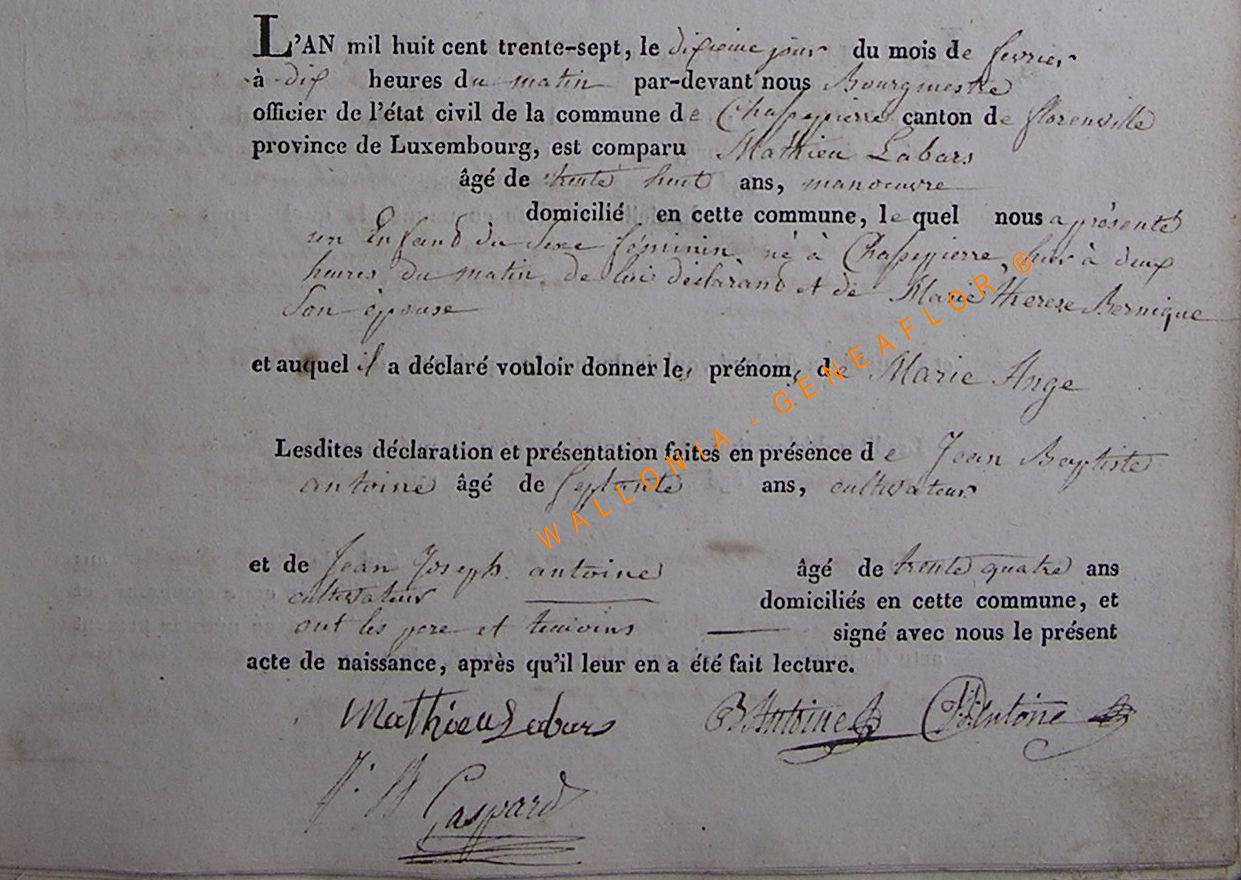 L'AN mil huit cent trente-sept, le dixieme jour du mois de fevrier
à dix heures du matin par-devant nous Bourgmestre
officier de l'état civil de la commune de Chassepierre canton de florenville
province de Luxembourg, est comparu Mathieu Labars
âgé de trente huit ans, manoeuvre
domicilié en cette commune, lequel nous a présenté
un Enfant du Sexe féminin né à Chassepierre, hier à deux
heures du matin, de lui déclarant et de Marie Therese Bernique
Son épouse
et auquel il a déclaré vouloir donner les prénoms de Marie Ange
Lesdites déclaration et présentation faites en présence de Jean Baptiste
antoine âgé de Septante ans, cultivateur
et de Jean Joseph antoine âgé de trente quatre ans
cultivateur domiciliés en cette commune, et
ont les pere et temoins signé avec nous le présent
acte de naissance, après qu'il leur en a été fait lecture.
Mathieu Labars B Antoine Antoine
J. B Gaspard
WALLONIA - GENEAFLOR ®